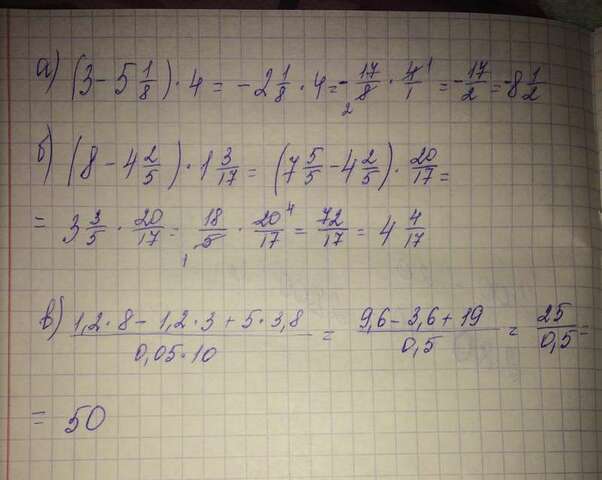 а) (3 - 5 1/8) · 4 = -2 1/8 · 4 = -17/8 2 · 4/1 1 = -17/2 = -8 1/2
б) (8 - 4 2/5) · 1 3/17 = (7 5/5 - 4 2/5) · 20/17 =
= 3 3/5 · 20/17 = 18/5 1 · 20/17 4 = 72/17 = 4 4/17
в) (1,2·8 - 1,2·3 + 5·3,8)/(0,05·10) = (9,6 - 3,6 + 19)/0,5 = 25/0,5 =
= 50